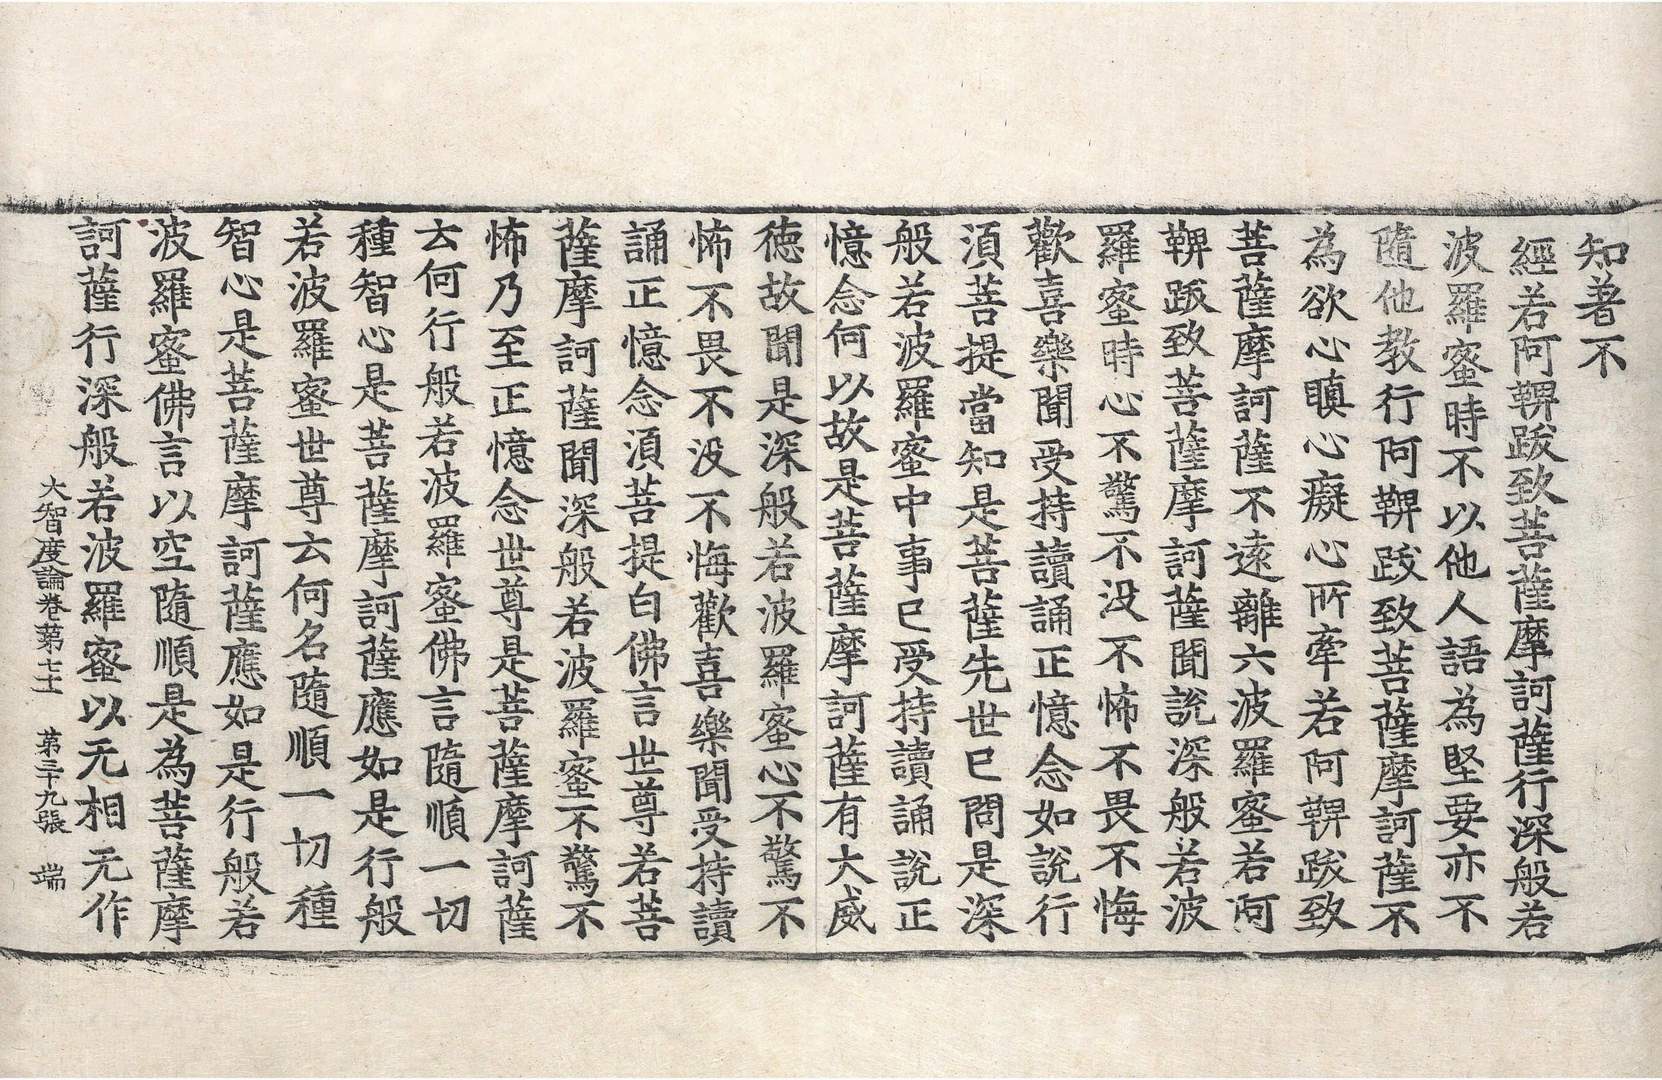 知著不
經若阿鞞跋致菩薩摩訶薩行深般若
波羅蜜時不以他人語為堅要亦不
隨他教行阿鞞跋致菩薩摩訶薩不
為欲心瞋心癡心所牽若阿鞞跋致
菩薩摩訶薩不遠離六波羅蜜若阿
鞞跋致菩薩摩訶薩聞說深般若波
羅蜜時心不驚不没不怖不畏不悔
歡喜樂聞受持讀誦正憶念如說行
須菩提當知是菩薩先世已問是深
般若波羅蜜中事已受持讀誦說正
憶念何以故是菩薩摩訶薩有大威
德故聞是深般若波羅蜜心不驚不
怖不畏不没不悔歡喜樂聞受持讀
誦正憶念須菩提白佛言世尊若菩
薩摩訶薩聞深般若波羅蜜不驚不
怖乃至正憶念世尊是菩薩摩訶薩
云何行般若波羅蜜佛言隨順一切
種智心是菩薩摩訶薩應如是行般
若波羅蜜世尊云何名隨順一切種
智心是菩薩摩訶薩應如是行般若
波羅蜜佛言以空隨順是為菩薩摩
訶薩行深般若波羅蜜以无相无作
大智度論卷第七十 第三十九張 端